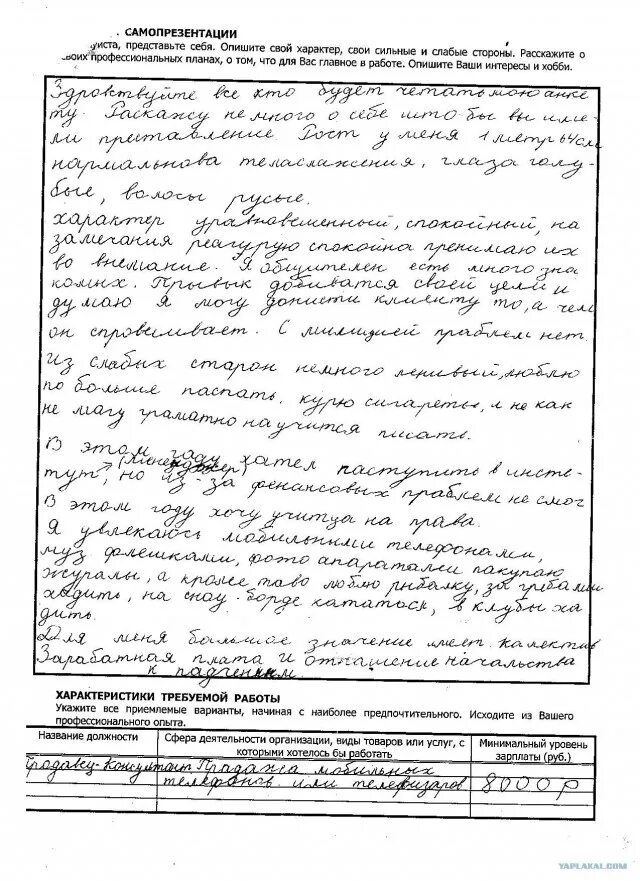 САМОПРЕЗЕНТАЦИИ
уиста, представьте себя. Опишите свой характер, свои сильные и слабые стороны. Расскажите о
своих профессиональных планах, о том, что для Вас главное в работе. Опишите Ваши интересы и хобби.
Здровствуйте все кто будет четать мою анке
ту. Раскажу немного о себе што бы вы име
ли преставление Рост у меня 1 метр 64 см
нармальнова теласлажения, глаза голу-
бые, волосы русые.
характер уравновешенный, спокойный, на
замечания реагурую спокойна пренимаю их
во внемание. Я общителен есть много зна
комых. Превык добиватся своей цели и
думаю я могу донисти клиенту то, а чем
он спровшевает. С милицией праблем нет.
Из слабых старон немного ленивый, люблю
по больше паспать. курю сигареты, и не как
не магу граматно научится писать.
В этом году хател паступить в инсте-
(менеджер)
тут, но из-за фенансовых праблем не смог
В этом году хочу учитца на права.
Я увлекаюсь мобильними телефонами,
муз флешками, фото апаратами пакупаю
журалы, а кроме таво люблю рыбалку, за грибами
хадить, на сноу-борде кататься, в клубы ха
дить.
Для меня большое значение имеет калектив
Зарабатная плата и отнашение начальства
к падченным.
ХАРАКТЕРИСТИКИ ТРЕБУЕМОЙ РАБОТЫ
Укажите все приемлемые варианты, начиная с наиболее предпочтительного. Исходите из Вашего
профессионального опыта.
Название должности Сфера деятельности организации, виды товаров или услуг, с которыми хотелось бы работать Минимальный уровень зарплаты (руб.)
Продавец-Консултант Прадажа мобильных
телефонов или телевизаров 8000 р
YAPLAKAL.COM